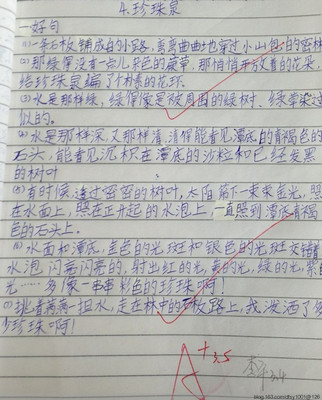 4.珍珠泉
一好句
(1)一条石板铺成的小路,弯弯曲曲地穿过小山包的密林
(2)那绿得没有一点儿杂色的蕨草,那悄悄开放着的花朵,
给珍珠泉编了个朴素的花环.
(3)水是那样绿,绿得像是被周围的绿树、绿草染过
似的。
(4)水是那样深,又那样清,清得能看见潭底的青褐色的
石头,能看见沉积在潭底的沙粒和已经发黑
的树叶
(5)有时候,透过密密的树叶,太阳筛下一束束金光,照
在水面上,照在正升起的水泡上,一直照到潭底青褐
色的石头上。
(6)水面和潭底,金色的光斑和银色的光斑交错着
水泡闪亮闪亮的,射出红的光,黄的光,绿的光,紫的
光……多像一串串彩色的珍珠啊!
(7)挑着满满一担水,走在林中的石板路上,我泼洒了多
少珍珠啊!
A+3.5
3.4